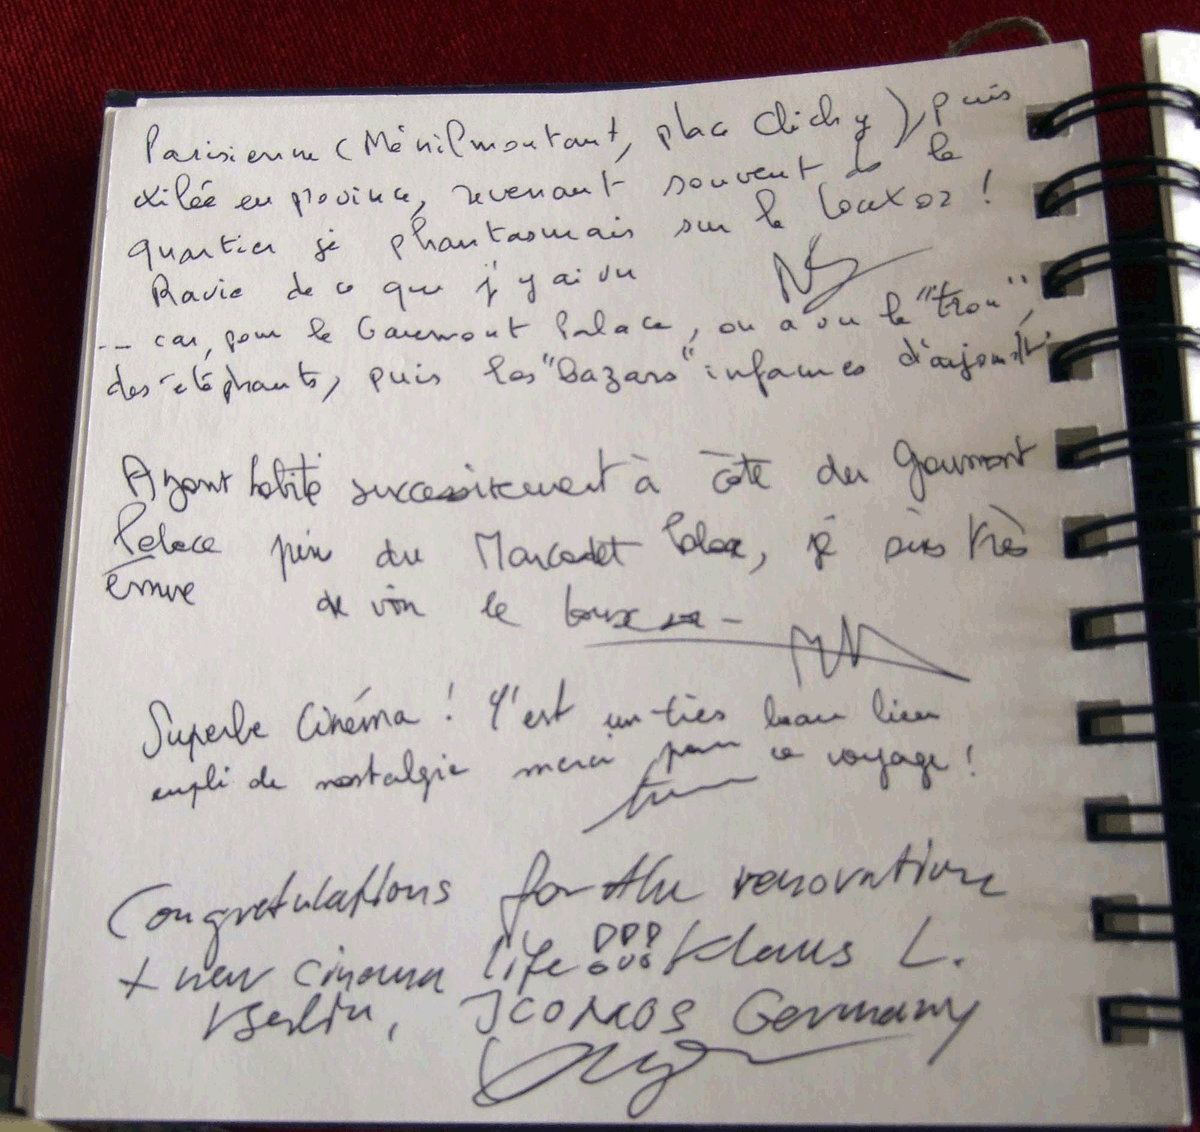 Parisienne (Ménilmontant, place Clichy), puis
exilée en province, revenant souvent ds le
quartier je phantasmais sur le Louxor !
Ravie de ce que j'y ai vu
NS
... car, pour le Gaumont Palace, on a vu le "trou",
des éléphants, puis les "Bazars" infames d'aujourd'hui
Ayant habité successivement à côté du Gaumont
Palace puis du Marcadet Palace, je suis très
émue de voir le Louxor -
Superbe Cinéma ! C'est un très beau lieu
empli de nostalgie merci pour ce voyage !
Congratulations for the renovation
+ new cinema life !!! Klaus L.
Berlin, ICOMOS Germany